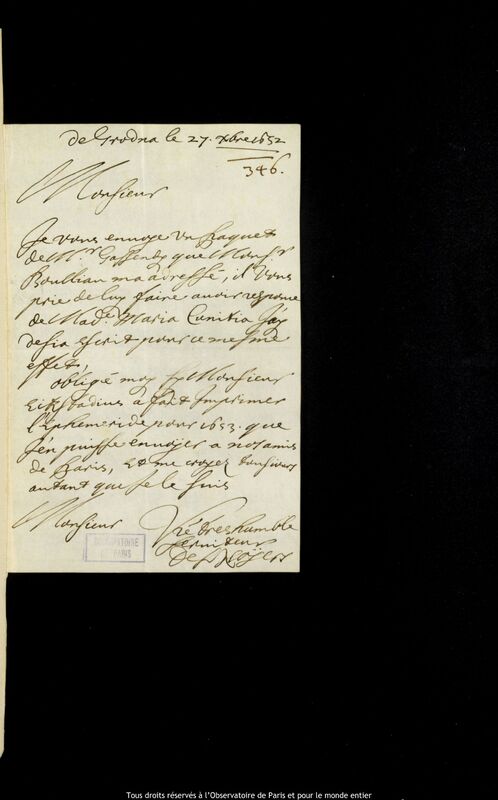 de Grodna le 27. Xbre 1652
346.
Monsieur
Je vous envoye un paquet
de Mr. Gassendy que Monsr.
Boulliau m'a adressé, il vous
prie de luy faire avoir response
de Made. Maria Cunitia j'ay
desia escrit pour ce mesme
effet,
obligé moy sy Monsieur
Eikstadius a fait Imprimer
l'Ephemeride pour 1653. que
j'en puisse envoyer a nos amis
de Paris, Et me croyez tousiours
autant que je le suis
Monsieur
Vre tres humble
serviteur
Des Noyers
OBSERVATOIRE
DE PARIS
Tous droits réservés à l'Observatoire de Paris et pour le monde entier